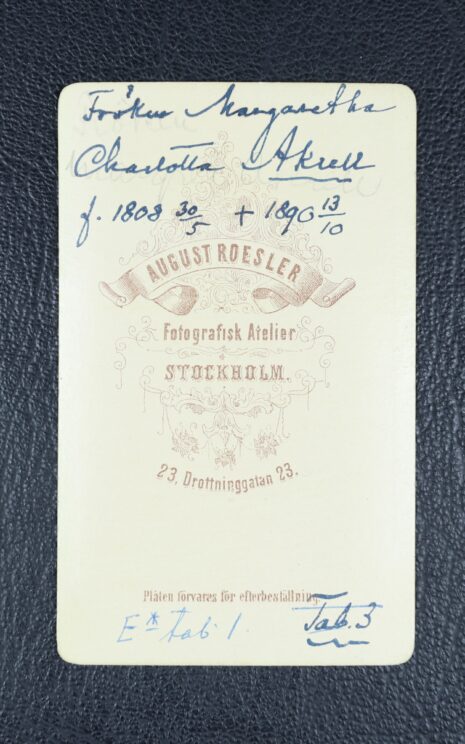 Fröken Margaretha
Charlotta Akrell
f. 1808 30/5 + 1890 13/10
AUGUST ROESLER
Fotografisk Atelier
STOCKHOLM.
23, Drottninggatan 23.
Plåten förvaras för efterbeställning.
E* tab 1.
Tab. 3